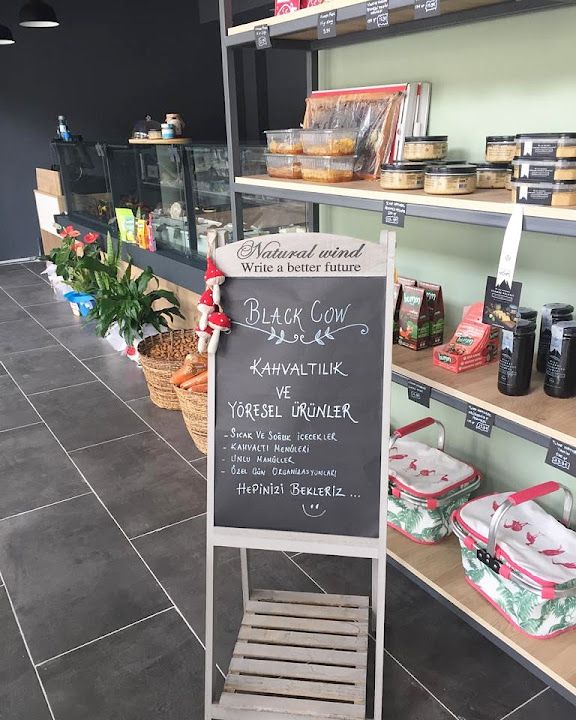 Natural wind
Write a better future
BLACK COW
KAHVALTILIK
VE
YÖRESEL ÜRÜNLER
- SICAK VE SOĞUK İÇECEKLER
- KAHVALTI MENÜLERİ
- UNLU MAMÜLLER
- ÖZEL GÜN ORGANİZASYONLARI
HEPİNİZİ BEKLERİZ...